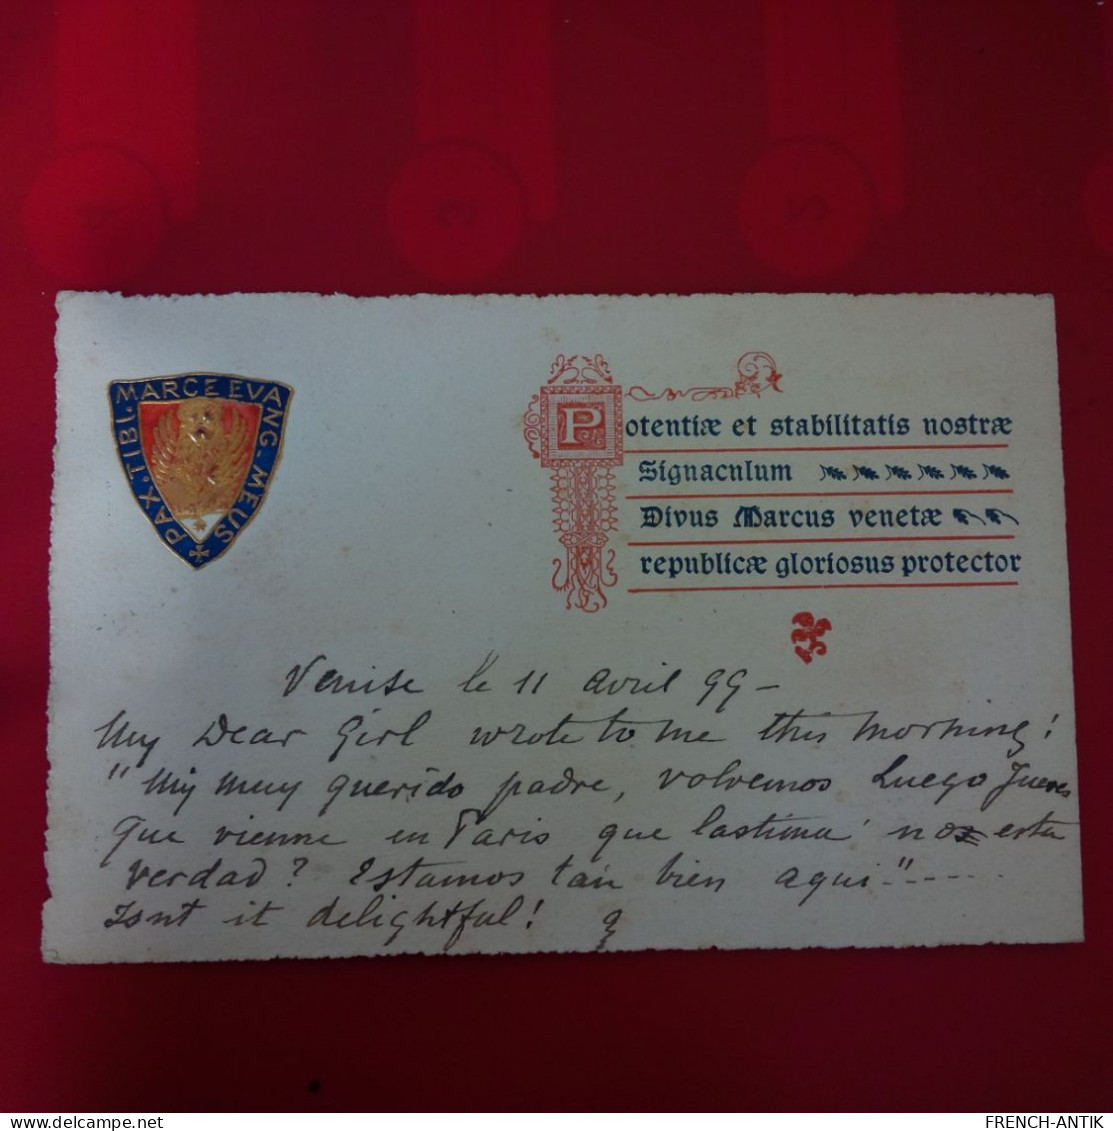 PAX · TIBI · MARCE EVANG - MEUS
Potentiæ et stabilitatis nostræ
Signaculum
Divus Marcus venetæ
republicæ gloriosus protector
Venise le 11 avril 99 -
My Dear Girl wrote to me this morning!
"My muy querido padre, volvemos Luego Jueves
que vienne en Paris que lastima no esta
verdad? Estamos tan bien aqui"------
Isnt it delightful!
FRENCH-ANTIK